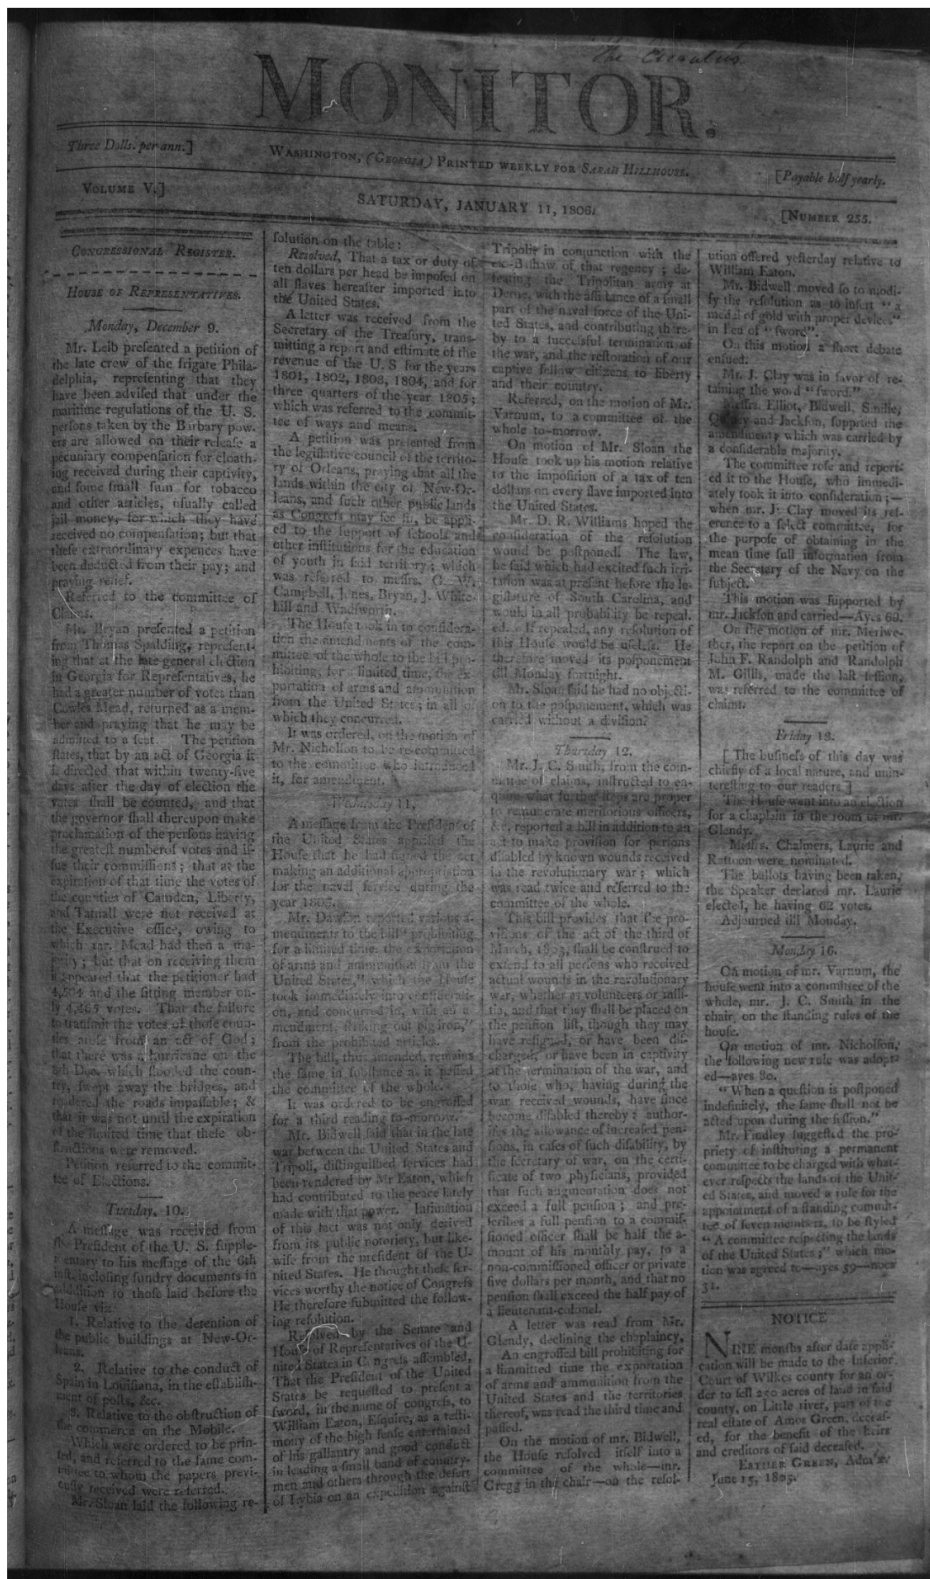 The
MONITOR.
Three Dolls. per ann.]
WASHINGTON, (GEORGIA) PRINTED WEEKLY FOR SARAH HILLHOUSE.
[Payable half yearly.
VOLUME V.]
SATURDAY, JANUARY 11, 1806.
[NUMBER 255.
CONGRESSIONAL REGISTER.
HOUSE OF REPRESENTATIVES.
Monday, December 9.
Mr. Leib presented a petition of
the late crew of the frigate Phila-
delphia, representing that they
have been advised that under the
maritime regulations of the U. S.
persons taken by the Barbary pow-
ers are allowed on their release a
pecuniary compensation for cloath-
ing received during their captivity,
and some small sum for tobacco
and other articles, usually called
jail money, for which they have
received no compensation; but that
these extraordinary expences have
been deducted from their pay; and
praying relief.
Referred to the committee of
Claims.
Mr. Bryan presented a petition
from Thomas Spalding, represent-
ing that at the late general election
in Georgia for Representatives, he
had a greater number of votes than
Cowles Mead, returned as a mem-
ber and praying that he may be
admitted to a seat. The petition
states, that by an act of Georgia it
is directed that within twenty-five
days after the day of election the
votes shall be counted, and that
the governor shall thereupon make
proclamation of the persons having
the greatest number of votes and is-
sue their commissions; that at the
expiration of that time the votes of
the counties of Camden, Liberty,
and Tatnall were not received at
the Executive office, owing to
which mr. Mead had then a ma-
jority; but that on receiving them
it appeared that the petitioner had
and the sitting member on-
ly votes. That the failure
to transmit the votes of those coun-
ties arose from an act of God;
that there was a hurricane on the
which flooded the coun-
try, swept away the bridges, and
rendered the roads impassable; &
that it was not until the expiration
of the limited time that these ob-
structions were removed.
Petition referred to the commit-
tee of Elections.
Tuesday, 10.
A message was received from
the President of the U. S. supple-
mentary to his message of the 6th
inst. inclosing sundry documents in
addition to those laid before the
House viz.
1. Relative to the detention of
the public buildings at New-Or-
leans.
2. Relative to the conduct of
Spain in Louisiana, in the establish-
ment of posts, &c.
3. Relative to the obstruction of
the commerce on the Mobile.
Which were ordered to be prin-
ted, and referred to the same com-
mittee to whom the papers previ-
ously received were referred.
Mr. Sloan laid the following re-
solution on the table:
Resolved, That a tax or duty of
ten dollars per head be imposed on
all slaves hereafter imported into
the United States.
A letter was received from the
Secretary of the Treasury, trans-
mitting a report and estimate of the
revenue of the U. S for the years
1801, 1802, 1803, 1804, and for
three quarters of the year 1805;
which was referred to the commit-
tee of ways and means.
A petition was presented from
the legislative council of the territo-
ry of Orleans, praying that all the
lands within the city of New-Or-
leans, and such other public lands
as Congress may see fit, be appli-
ed to the support of schools and
other institutions for the education
of youth in said territory; which
was referred to messrs.
Campbell, Jones, Bryan, J. White-
hill and Wadsworth.
The House took in to considera-
tion the amendments of the com-
mittee of the whole to the bill pro-
hibiting, for limited time, the ex-
portation of arms and ammunition
from the United States; in all of
which they concurred.
It was ordered, on the motion of
Mr. Nicholson to be re-committed
to the committee who introduced
it, for amendment.
Wednesday 11,
A message from the President of
the United States apprised the
House that he had signed the act
making an additional appropriation
for the naval service during the
year 1805.
Mr. Dawson reported various a-
mendments to the bill "prohibiting
for a limited time, the exportation
of arms and ammunition from the
United States," which the House
took immediately into considerati-
on, and concurred in, with an a-
mendment, striking out "pig iron,"
from the prohibited articles.
The bill, thus amended, remains
the same in substance as it passed
the committee of the whole.
It was ordered to be engrossed
for a third reading to-morrow.
Mr. Bidwell said that in the late
war between the United States and
Tripoli, distinguished services had
been rendered by Mr Eaton, which
had contributed to the peace lately
made with that power. Intimation
of this fact was not only derived
from its public notoriety, but like-
wise from the president of the U-
nited States. He thought these ser-
vices worthy the notice of Congress
He therefore submitted the follow-
ing resolution.
Resolved, by the Senate and
House of Representatives of the U-
nited States in Congress assembled,
That the President of the United
States be requested to present a
sword, in the name of congress, to
William Eaton, Esquire, as a testi-
mony of the high sense entertained
of his gallantry and good conduct
in leading a small band of country-
men and others through the desert
of Lybia on an expedition against
Tripoli in conjunction with the
ex-Bashaw of that regency; de-
feating the Tripolitan army at
Derne, with the assistance of a small
part of the naval force of the Uni-
ted States, and contributing there-
by to a successful termination of
the war, and the restoration of our
captive fellow citizens to liberty
and their country.
Referred, on the motion of Mr.
Varnum, to a committee of the
whole to-morrow.
On motion of Mr. Sloan the
House took up his motion relative
to the imposition of a tax of ten
dollars on every slave imported into
the United States.
Mr. D. R. Williams hoped the
consideration of the resolution
would be postponed. The law,
he said which had excited such irri-
tation was at present before the le-
gislature of South Carolina, and
would in all probability be repeal-
ed. If repealed, any resolution of
this House would be useless. He
therefore moved its postponement
till Monday fortnight.
Mr. Sloan said he had no objecti-
on to the postponement, which was
carried without a division.
Thursday 12.
Mr. J. C. Smith, from the com-
mittee of claims, instructed to en-
quire what further steps are proper
to remunerate meritorious officers,
&c. reported a bill in addition to an
act to make provision for persons
disabled by known wounds received
in the revolutionary war; which
was read twice and referred to the
committee of the whole.
This bill provides that the pro-
visions of the act of the third of
March, 1803, shall be construed to
extend to all persons who received
actual wounds in the revolutionary
war, whether as volunteers or mili-
tia, and that they shall be placed on
the pension list, though they may
have resigned, or have been dis-
charged, or have been in captivity
at the termination of the war, and
to those who, having during the
war received wounds, have since
become disabled thereby; author-
ises the allowance of increased pen-
sions, in cases of such disability, by
the secretary of war, on the certi-
ficate of two physicians, provided
that such augmentation does not
exceed a full pension; and pre-
scribes a full pension to a commis-
sioned officer shall be half the a-
mount of his monthly pay, to a
non-commissioned officer or private
five dollars per month, and that no
pension shall exceed the half pay of
a lieutenant-colonel.
A letter was read from Mr.
Glendy, declining the chaplaincy,
An engrossed bill prohibiting for
a limmitted time the exportation
of arms and ammunition from the
United States and the territories
thereof, was read the third time and
passed.
On the motion of mr. Bidwell,
the House resolved itself into a
committee of the whole—mr.
Gregg in the chair—on the resol-
ution offered yesterday relative to
William Eaton.
Mr. Bidwell moved so to modi-
fy the resolution as to insert "a
medal of gold with proper devices"
in lieu of "sword".
On this motion a short debate
ensued.
Mr. J. Clay was in favor of re-
taining the word "sword."
Messrs. Elliot, Bidwell, Smilie,
Quincy and Jackson, supprted the
amendment which was carried by
a considerable majority.
The committee rose and report-
ed it to the House, who immedi-
ately took it into consideration;—
when mr. J. Clay moved its ref-
erence to a select committee, for
the purpose of obtaining in the
mean time full information from
the Secretary of the Navy on the
subject.
This motion was supported by
mr. Jackson and carried—Ayes 69.
On the motion of mr. Meriwe-
ther, the report on the petition of
John F. Randolph and Randolph
M. Gillis, made the last session,
was referred to the committee of
claims.
Friday 13.
[The business of this day was
chiefly of a local nature, and unin-
teresting to our readers.]
The House went into an election
for a chaplain in the room of mr.
Glendy.
Messrs. Chalmers, Laurie and
Rattoon were nominated.
The ballots having been taken,
the Speaker declared mr. Laurie
elected, he having 62 votes.
Adjourned till Monday.
Monday 16.
On motion of mr. Varnum, the
house went into a committee of the
whole, mr. J. C. Smith in the
chair, on the standing rules of the
house.
On motion of mr. Nicholson,
the following new rule was adopt-
ed—ayes 80.
"When a question is postponed
indefinitely, the same shall not be
acted upon during the session."
Mr. Findley suggested the pro-
priety of instituting a permanent
committee to be charged with what-
ever respects the lands of the Unit-
ed States, and moved a rule for the
appointment of a standing commit-
tee, of seven members, to be styled
"A committee respecting the lands
of the United States;" which mo-
tion was agreed to—ayes 59—noes
31.
NOTICE
NINE months after date appli-
cation will be made to the Inferior
Court of Wilkes county for an or-
der to sell 200 acres of land in said
county, on Little river, part of the
real estate of Amos Green, deceas-
ed, for the benefit of the heirs
and creditors of said deceased.
ESTHER GREEN, Adm'rx
June 15, 1805.